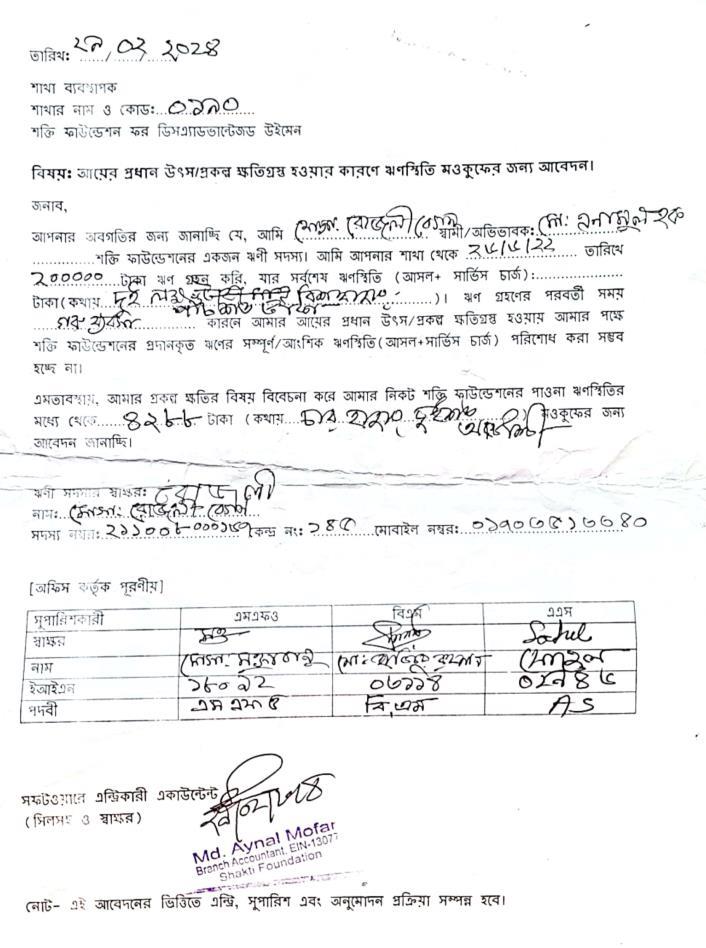 তারিখ: ২৭/০২/২০২৪
শাখা ব্যবস্থাপক
শাখার নাম ও কোড: ০১৯০
শক্তি ফাউন্ডেশন ফর ডিসএ্যাডভান্টেজড উইমেন
বিষয়: আয়ের প্রধান উৎস/প্রকল্প ক্ষতিগ্রস্থ হওয়ার কারণে ঋণস্থিতি মওকুফের জন্য আবেদন।
জনাব,
আপনার অবগতির জন্য জানাচ্ছি যে, আমি মোসা: রোজেলী বেগম স্বামী/অভিভাবক: মো: এনামুল হক
শক্তি ফাউন্ডেশনের একজন ঋণী সদস্য। আমি আপনার শাখা থেকে তারিখে
২০০০০০ টাকা ঋণ গ্রহন করি, যার সর্বশেষ ঋণস্থিতি (আসল+ সার্ভিস চার্জ):
টাকা (কথায় দুই লক্ষ )। ঋণ গ্রহণের পরবর্তী সময়
গরু ব্যবসা কারনে আমার আয়ের প্রধান উৎস/প্রকল্প ক্ষতিগ্রস্থ হওয়ায় আমার পক্ষে
শক্তি ফাউন্ডেশনের প্রদানকৃত ঋণের সম্পূর্ণ/আংশিক ঋণস্থিতি (আসল+সার্ভিস চার্জ) পরিশোধ করা সম্ভব
হচ্ছে না।
এমতাবস্থায়, আমার প্রকল্প ক্ষতির বিষয় বিবেচনা করে আমার নিকট শক্তি ফাউন্ডেশনের পাওনা ঋণস্থিতির
মধ্যে থেকে ৪২৮৮ টাকা (কথায় চার হাজার দুইশত অষ্টাশী) মওকুফের জন্য
আবেদন জানাচ্ছি।
ঋণী সদস্যের স্বাক্ষর: রোজেলী
নাম: মোসা: রোজেলী বেগম
সদস্য নম্বর: কেন্দ্র নং: ২৪৫ মোবাইল নম্বর:
[অফিস কর্তৃক পূরণীয়]
সুপারিশকারী এমএফও বিএম এএস
স্বাক্ষর Sohel
নাম সোহেল
ইআইএন ০৬১১৪
পদবী এস এফ ও বি,এম AS
সফটওয়ারে এন্ট্রিকারী একাউন্টেন্ট
(সিলসহ ও স্বাক্ষর)
Md. Aynal Mofar
Branch Accountant, EIN-13077
Shakti Foundation
নোট- এই আবেদনের ভিত্তিতে এন্ট্রি, সুপারিশ এবং অনুমোদন প্রক্রিয়া সম্পন্ন হবে।